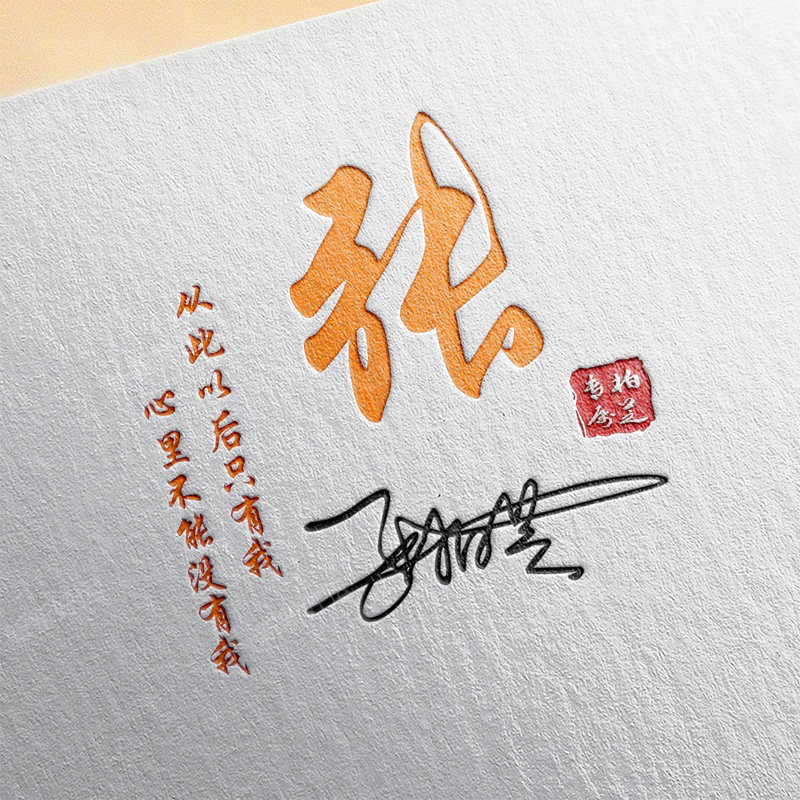 张
从此以后只有我
心里不能没有我
柏芝
专属
张柏芝